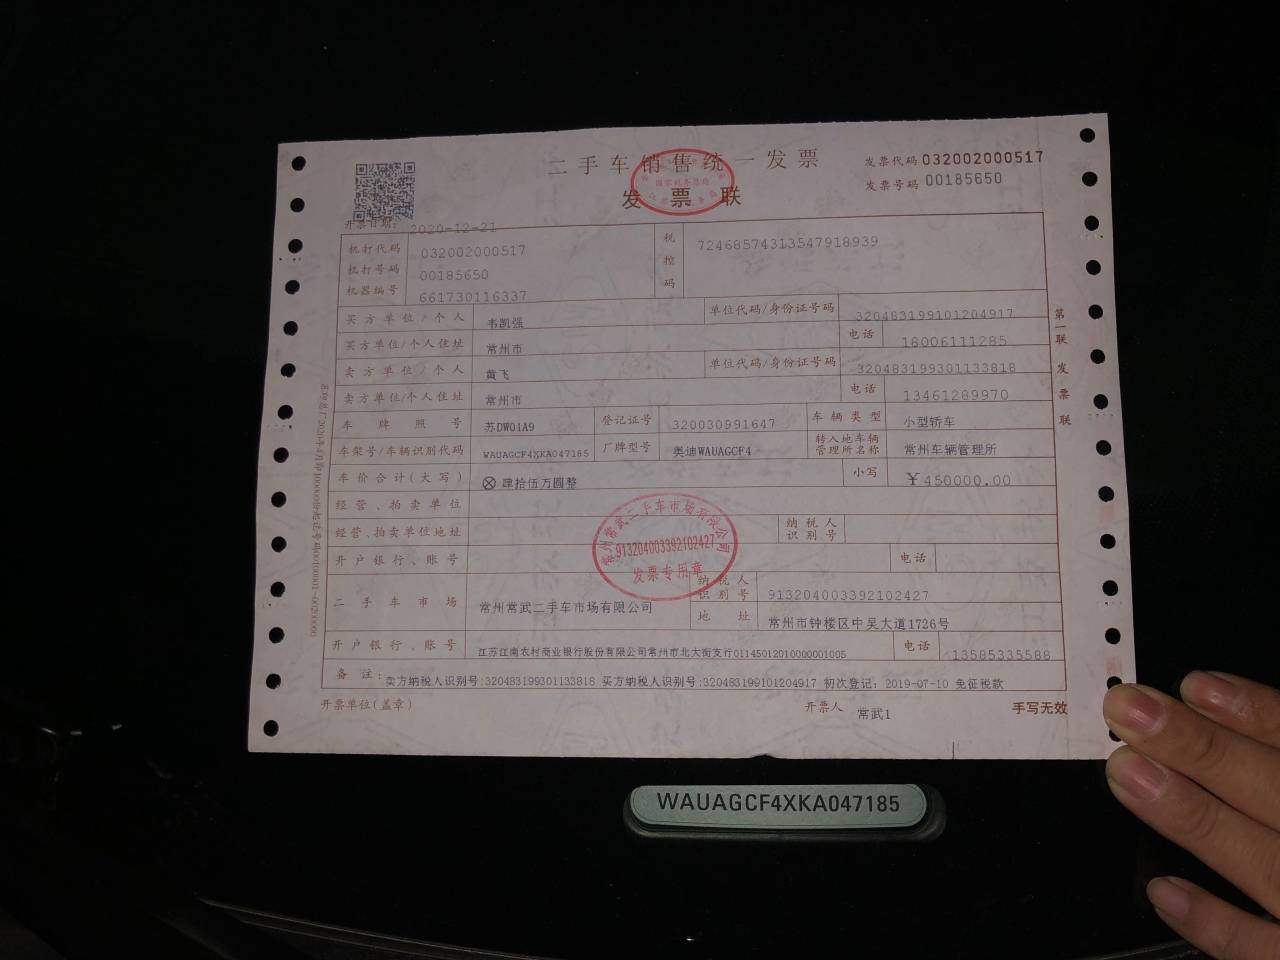 二手车销售统一发票
发票联
发票代码 032002000517
发票号码 00185650
开票日期: 2020-12-21
机打代码 032002000517
机打号码 00185650
机器编号 661730116337
税控码 72468574313547918939
买方单位/个人 韦凯强 单位代码/身份证号码 320483199101204917
买方单位/个人住址 常州市 电话 18006111285
卖方单位/个人 黄飞 单位代码/身份证号码 320483199301133818
卖方单位/个人住址 常州市 电话 13461289970
车牌照号 苏DW01A9 登记证号 320030991647 车辆类型 小型轿车
车架号/车辆识别代码 WAUAGCF4XKA047185 厂牌型号 奥迪WAUAGCF4 转入地车辆管理所名称 常州车辆管理所
车价合计(大写) ⊗ 肆拾伍万圆整 小写 ¥450000.00
经营、拍卖单位
经营、拍卖单位地址 纳税人识别号
开户银行、账号 电话
二手车市场 常州常武二手车市场有限公司 纳税人识别号 913204003392102427
地址 常州市钟楼区中吴大道1726号
开户银行、账号 江苏江南农村商业银行股份有限公司常州市北大街支行01145012010000001005 电话 13585335588
备注: 卖方纳税人识别号:320483199301133818 买方纳税人识别号:320483199101204917 初次登记: 2019-07-10 免征税款
开票单位(盖章) 开票人 常武1 手写无效
第一联 发票联
国家税务总局
常州常武二手车市场有限公司
913204003392102427
发票专用章
WAUAGCF4XKA047185